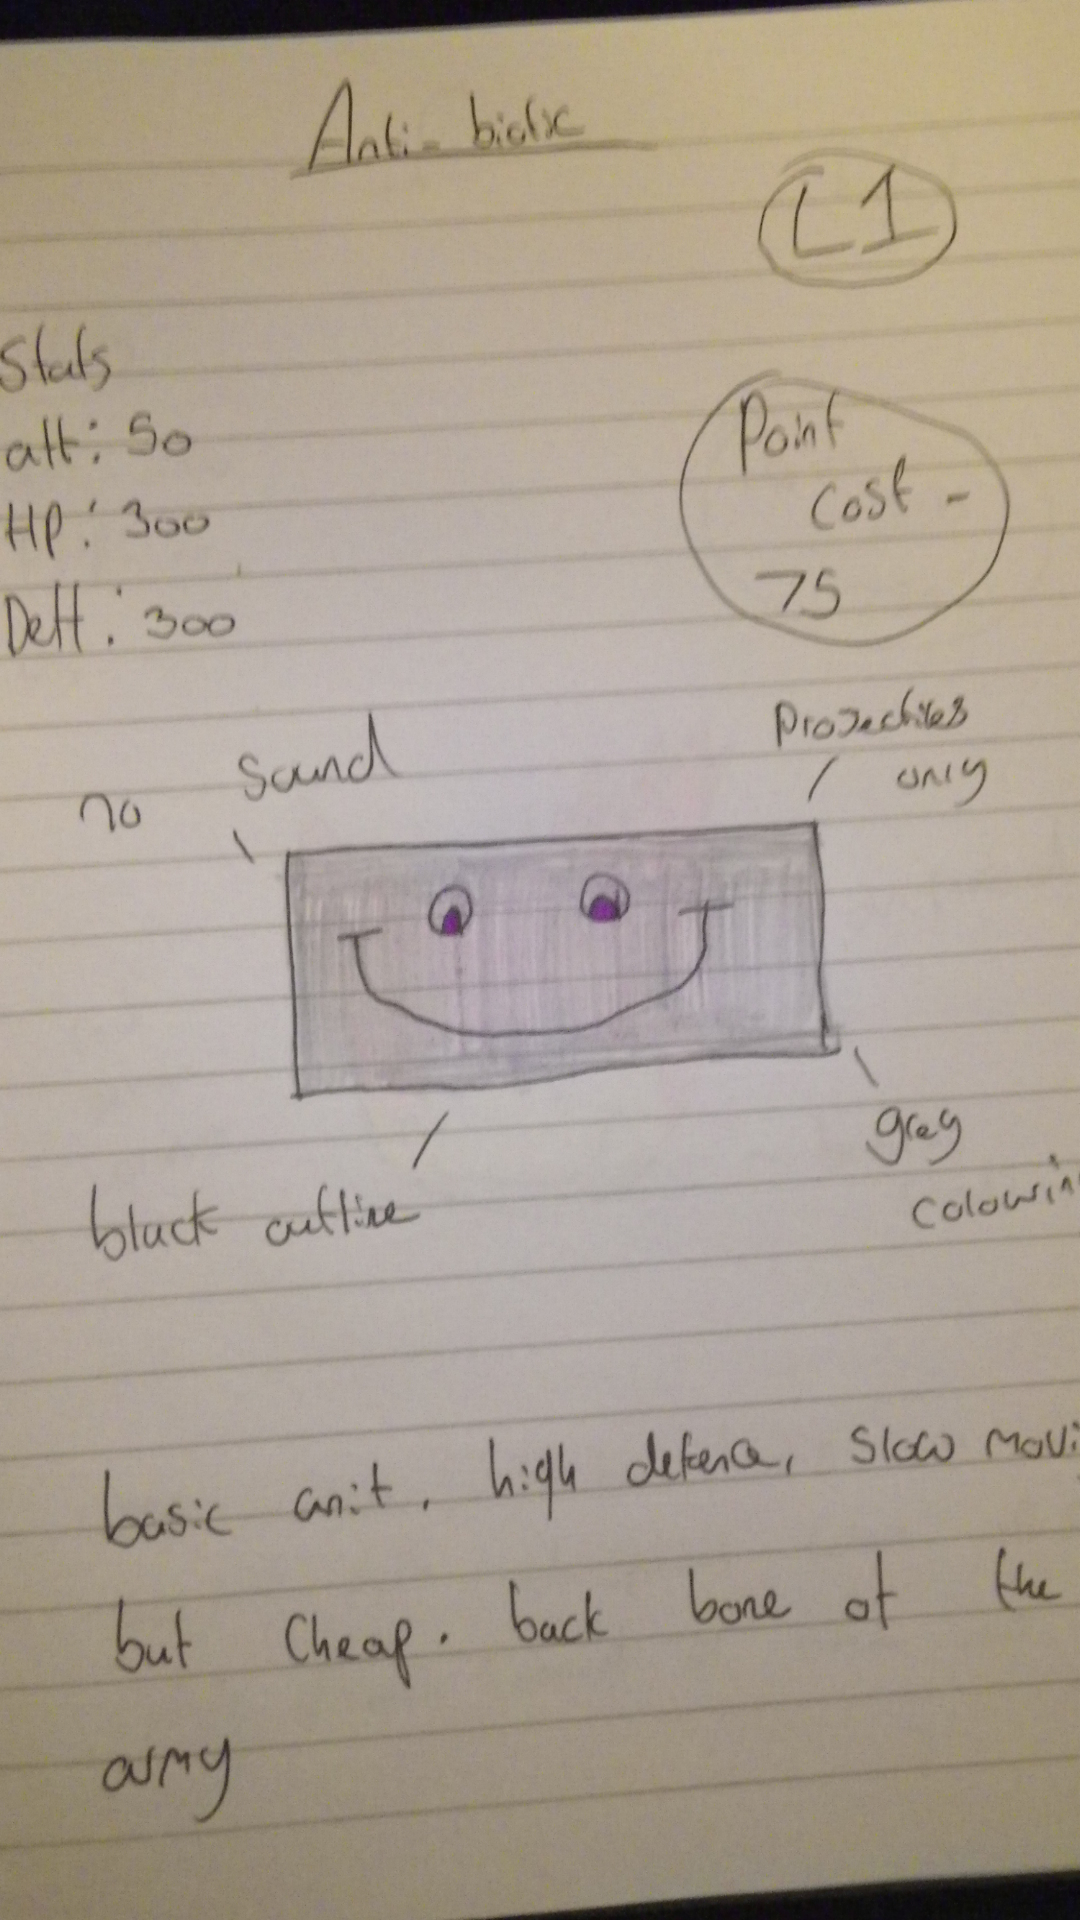 Anti-biotic
L1
Stats
att: 50
HP: 300
Deff: 300
Point
cost -
75
no sound
Projectiles
only
black outline
grey
colourin
basic unit, high defence, slow movi
but cheap. back bone of the
army